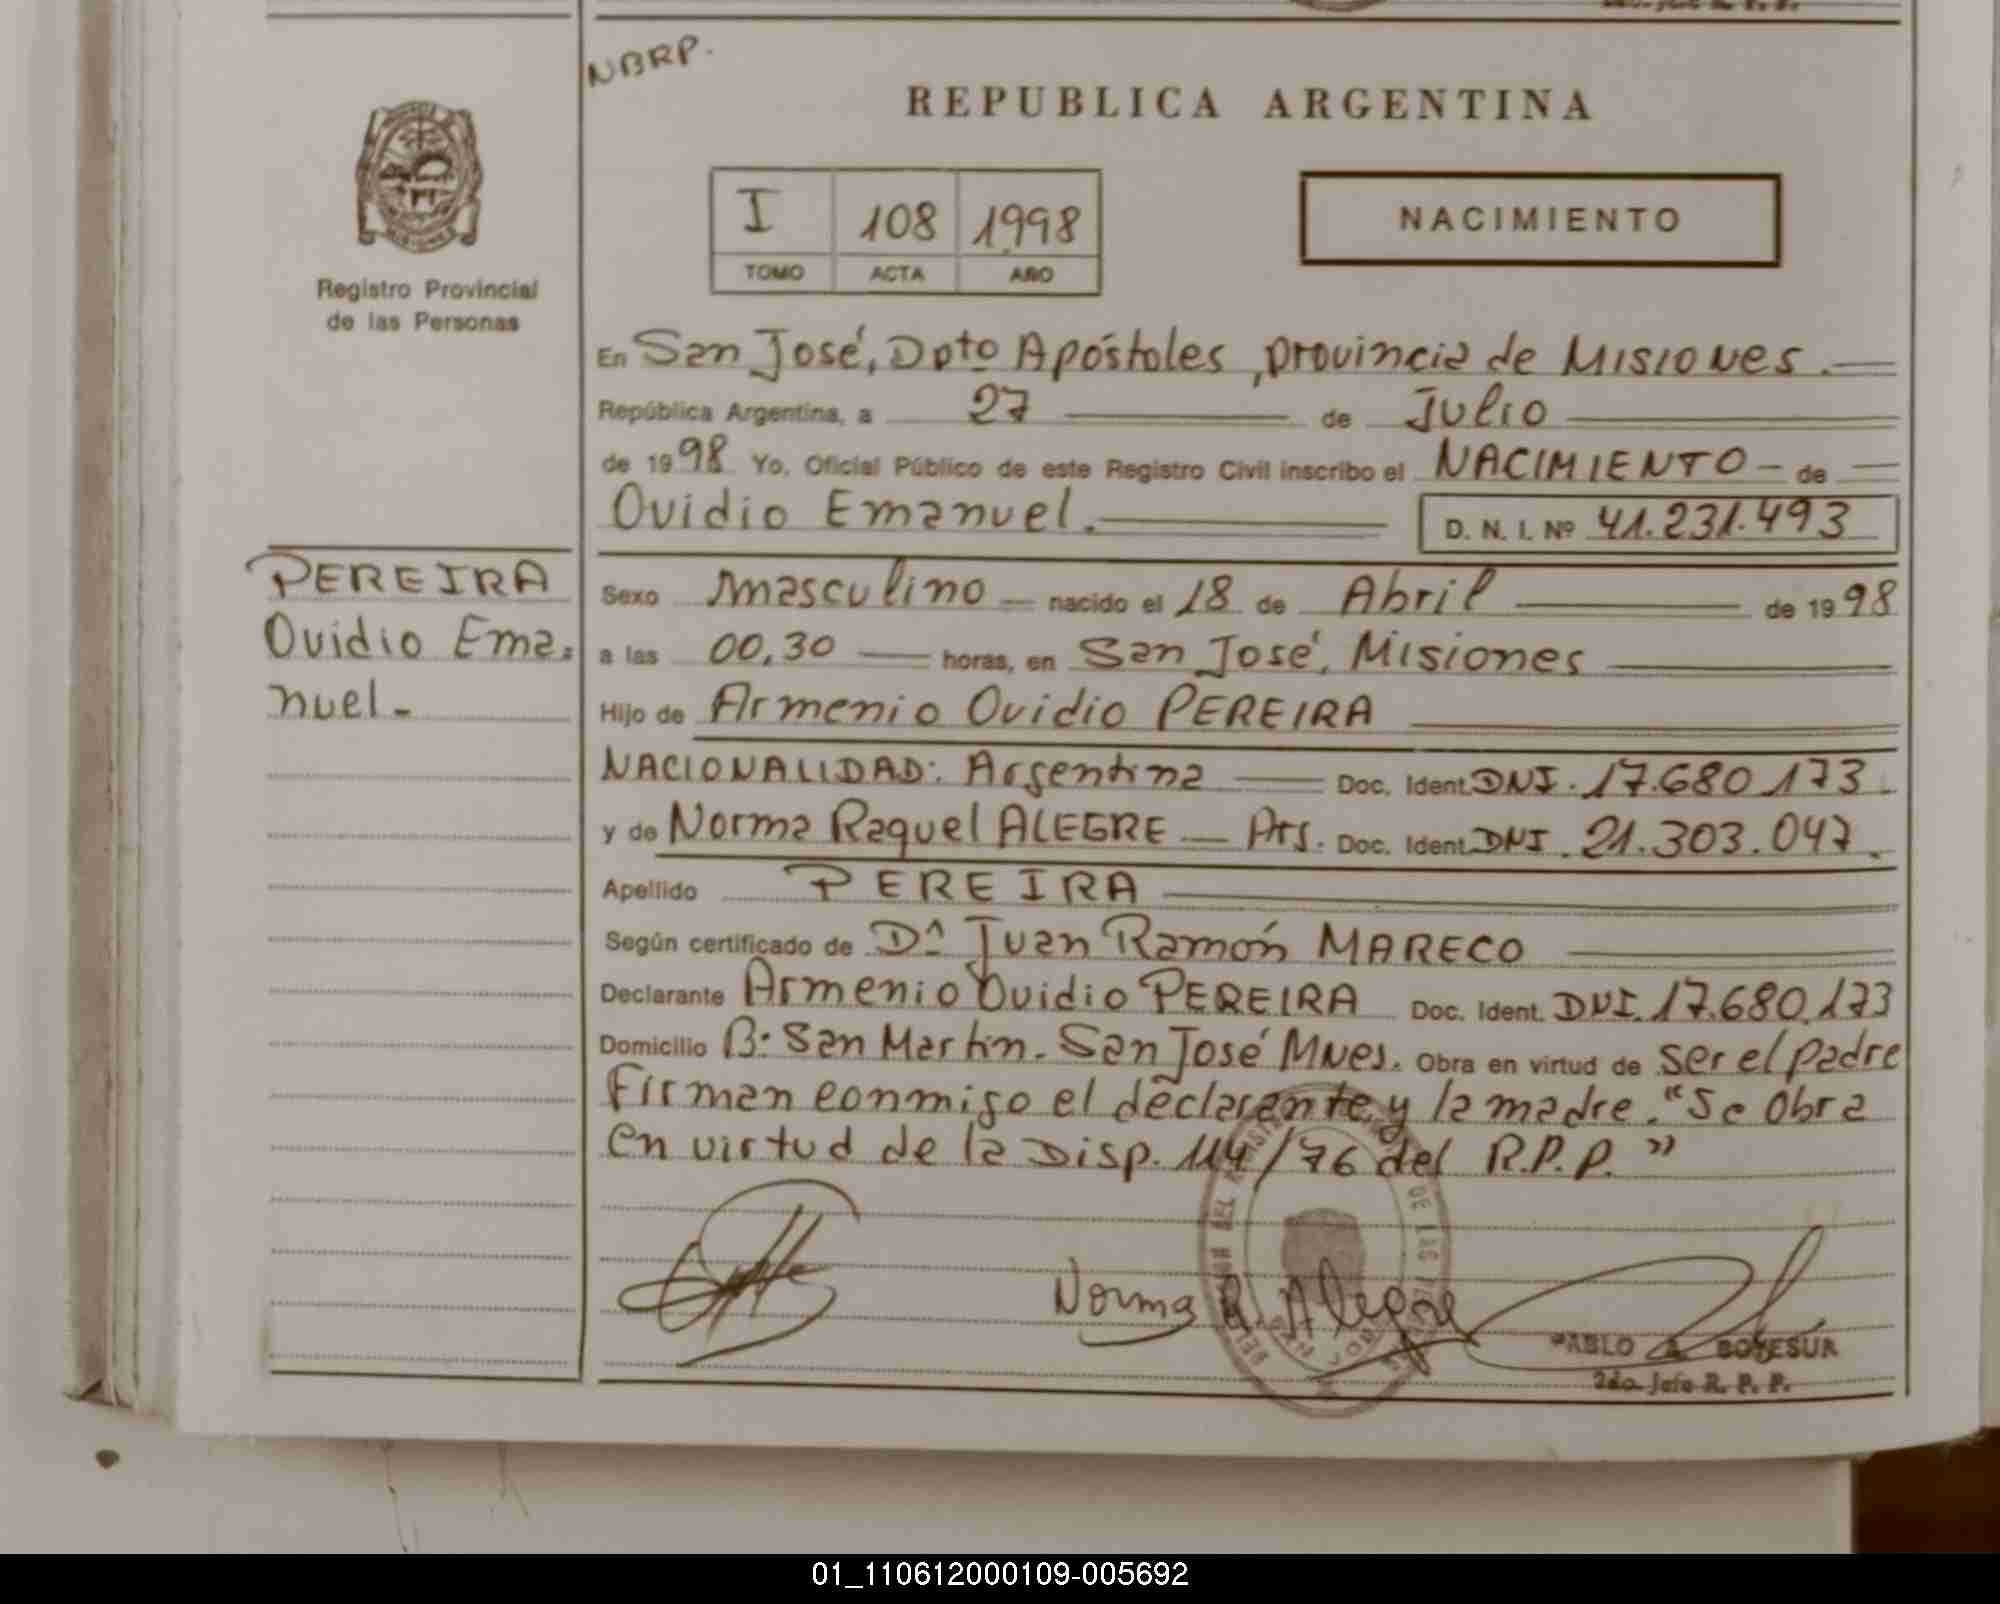 NBRP.
REPUBLICA ARGENTINA
MISIONES
Registro Provincial
de las Personas
I 108 1998
TOMO ACTA AÑO
NACIMIENTO
En San José, Dpto Apóstoles, provincia de Misiones.
República Argentina, a 27 de Julio
de 1998 Yo, Oficial Público de este Registro Civil inscribo el NACIMIENTO de
Ovidio Emanuel. D. N. I. Nº 41.231.493
PEREIRA
Ovidio Ema=
nuel-
Sexo masculino nacido el 18 de Abril de 1998
a las 00,30 horas, en San José, Misiones
Hijo de Armenio Ovidio PEREIRA
NACIONALIDAD: Argentina Doc. Ident. DNI. 17.680.173
y de Norma Raquel ALEGRE Arg. Doc. Ident. DNI. 21.303.047.
Apellido PEREIRA
Según certificado de Dn Juan Ramón MARECO
Declarante Armenio Ovidio PEREIRA Doc. Ident. DNI. 17.680.173
Domicilio Bº San Martin. San José Mnes. Obra en virtud de ser el padre
Firman conmigo el declarante y la madre. "Se obra
en virtud de la Disp. 114/76 del R.P.P."
Norma R. Alegre
PABLO A. BOYESUR
2do. Jefe R. P. P.
01_110612000109-005692